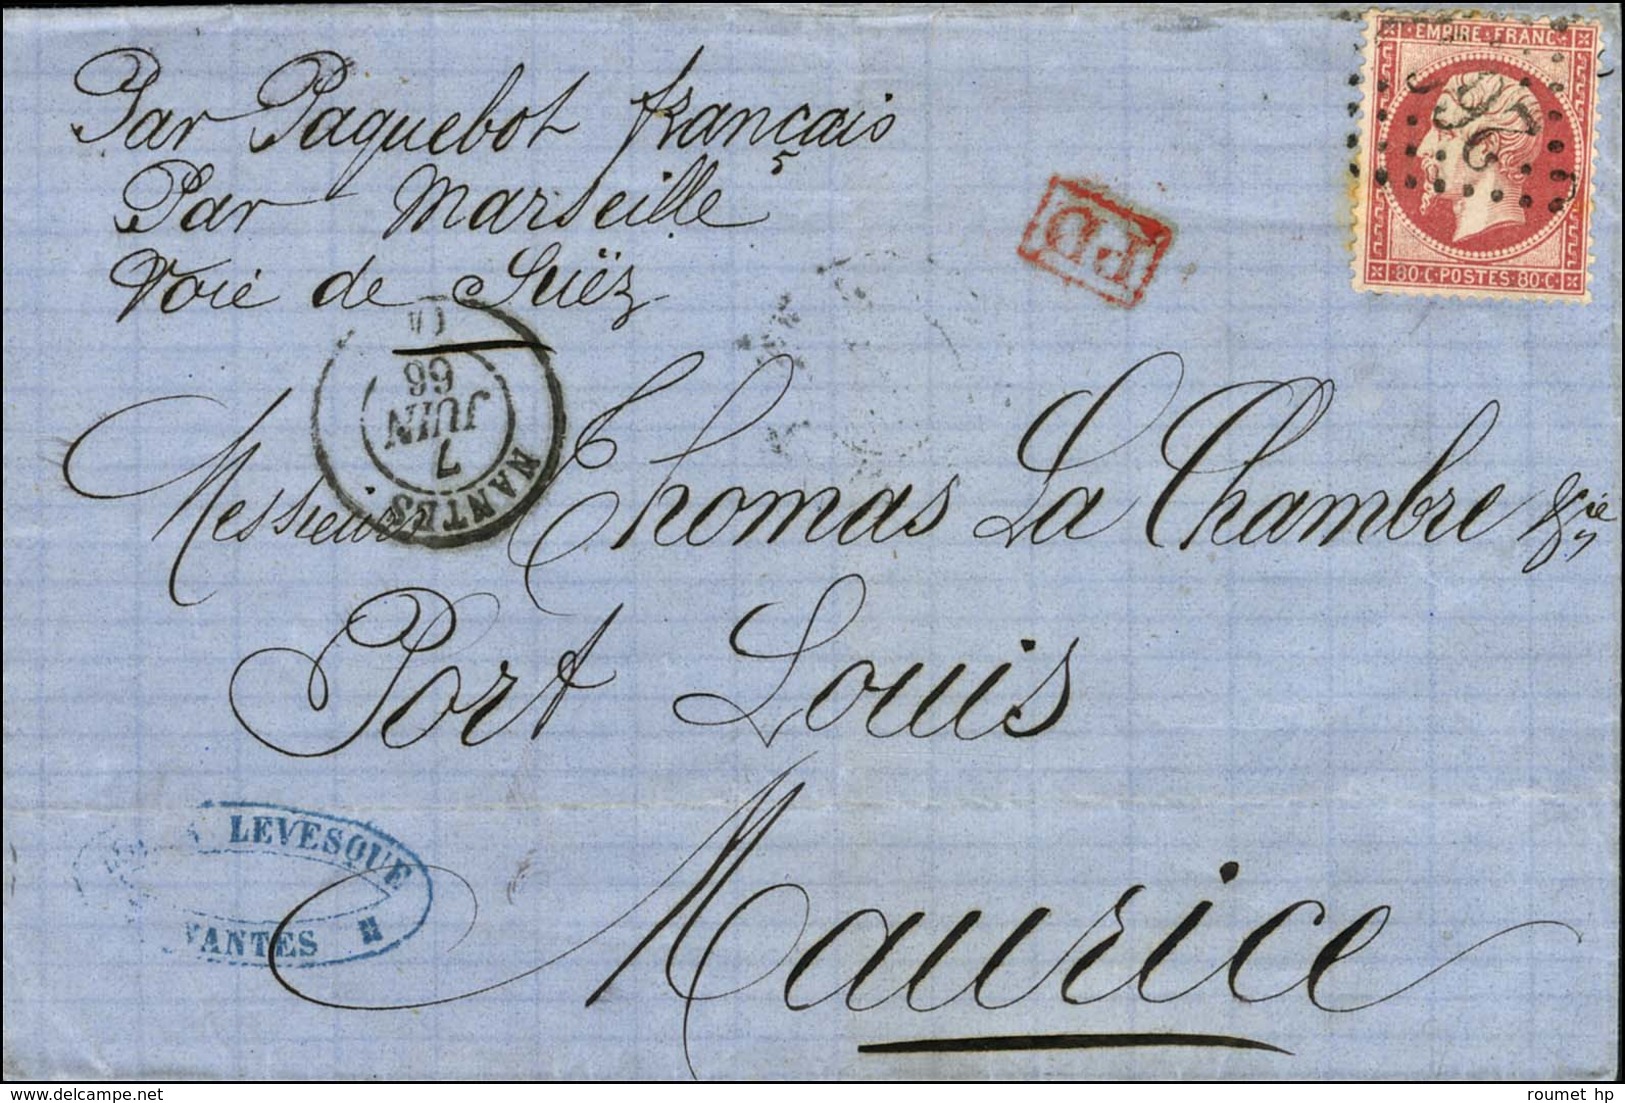 Par Paquebot français
Par Marseille
Voie de Suëz
EMPIRE·FRANC
2602
80·C·POSTES·80·C·
P.D.
NANTES
7
JUIN
66
Messieurs Thomas La Chambre & Cie
Port Louis
Maurice
LEVESQUE
NANTES
roumet hp